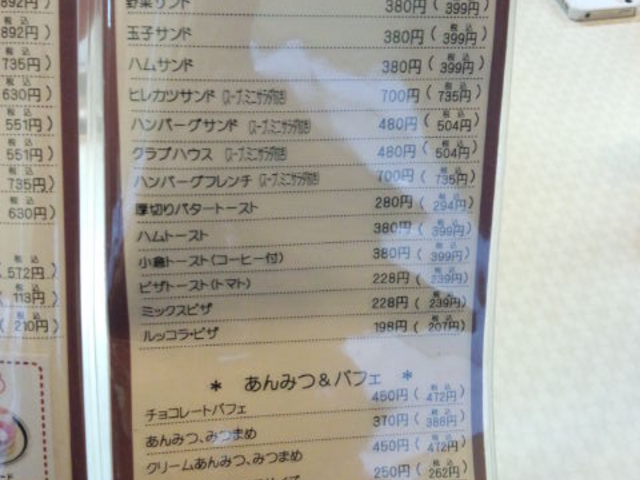 892円)
892円)
735円)
630円)
551円)
551円)
735円)
630円)
572円)
113円)
(210円)
野菜サンド 380円(税込399円)
玉子サンド 380円(税込399円)
ハムサンド 380円(税込399円)
ヒレカツサンド (スープ、ミニサラダ付き) 700円(税込735円)
ハンバーグサンド (スープ、ミニサラダ付き) 480円(税込504円)
クラブハウス (スープ、ミニサラダ付き) 480円(税込504円)
ハンバーグフレンチ (スープ、ミニサラダ付き) 700円(税込735円)
厚切りバタートースト 280円(税込294円)
ハムトースト 380円(税込399円)
小倉トースト(コーヒー付) 380円(税込399円)
ピザトースト(トマト) 228円(税込239円)
ミックスピザ 228円(税込239円)
ルッコラ・ピザ 198円(税込207円)
* あんみつ&パフェ *
チョコレートパフェ 450円(税込472円)
あんみつ、みつまめ 370円(税込388円)
クリームあんみつ、みつまめ 450円(税込472円)
250円(税込262円)